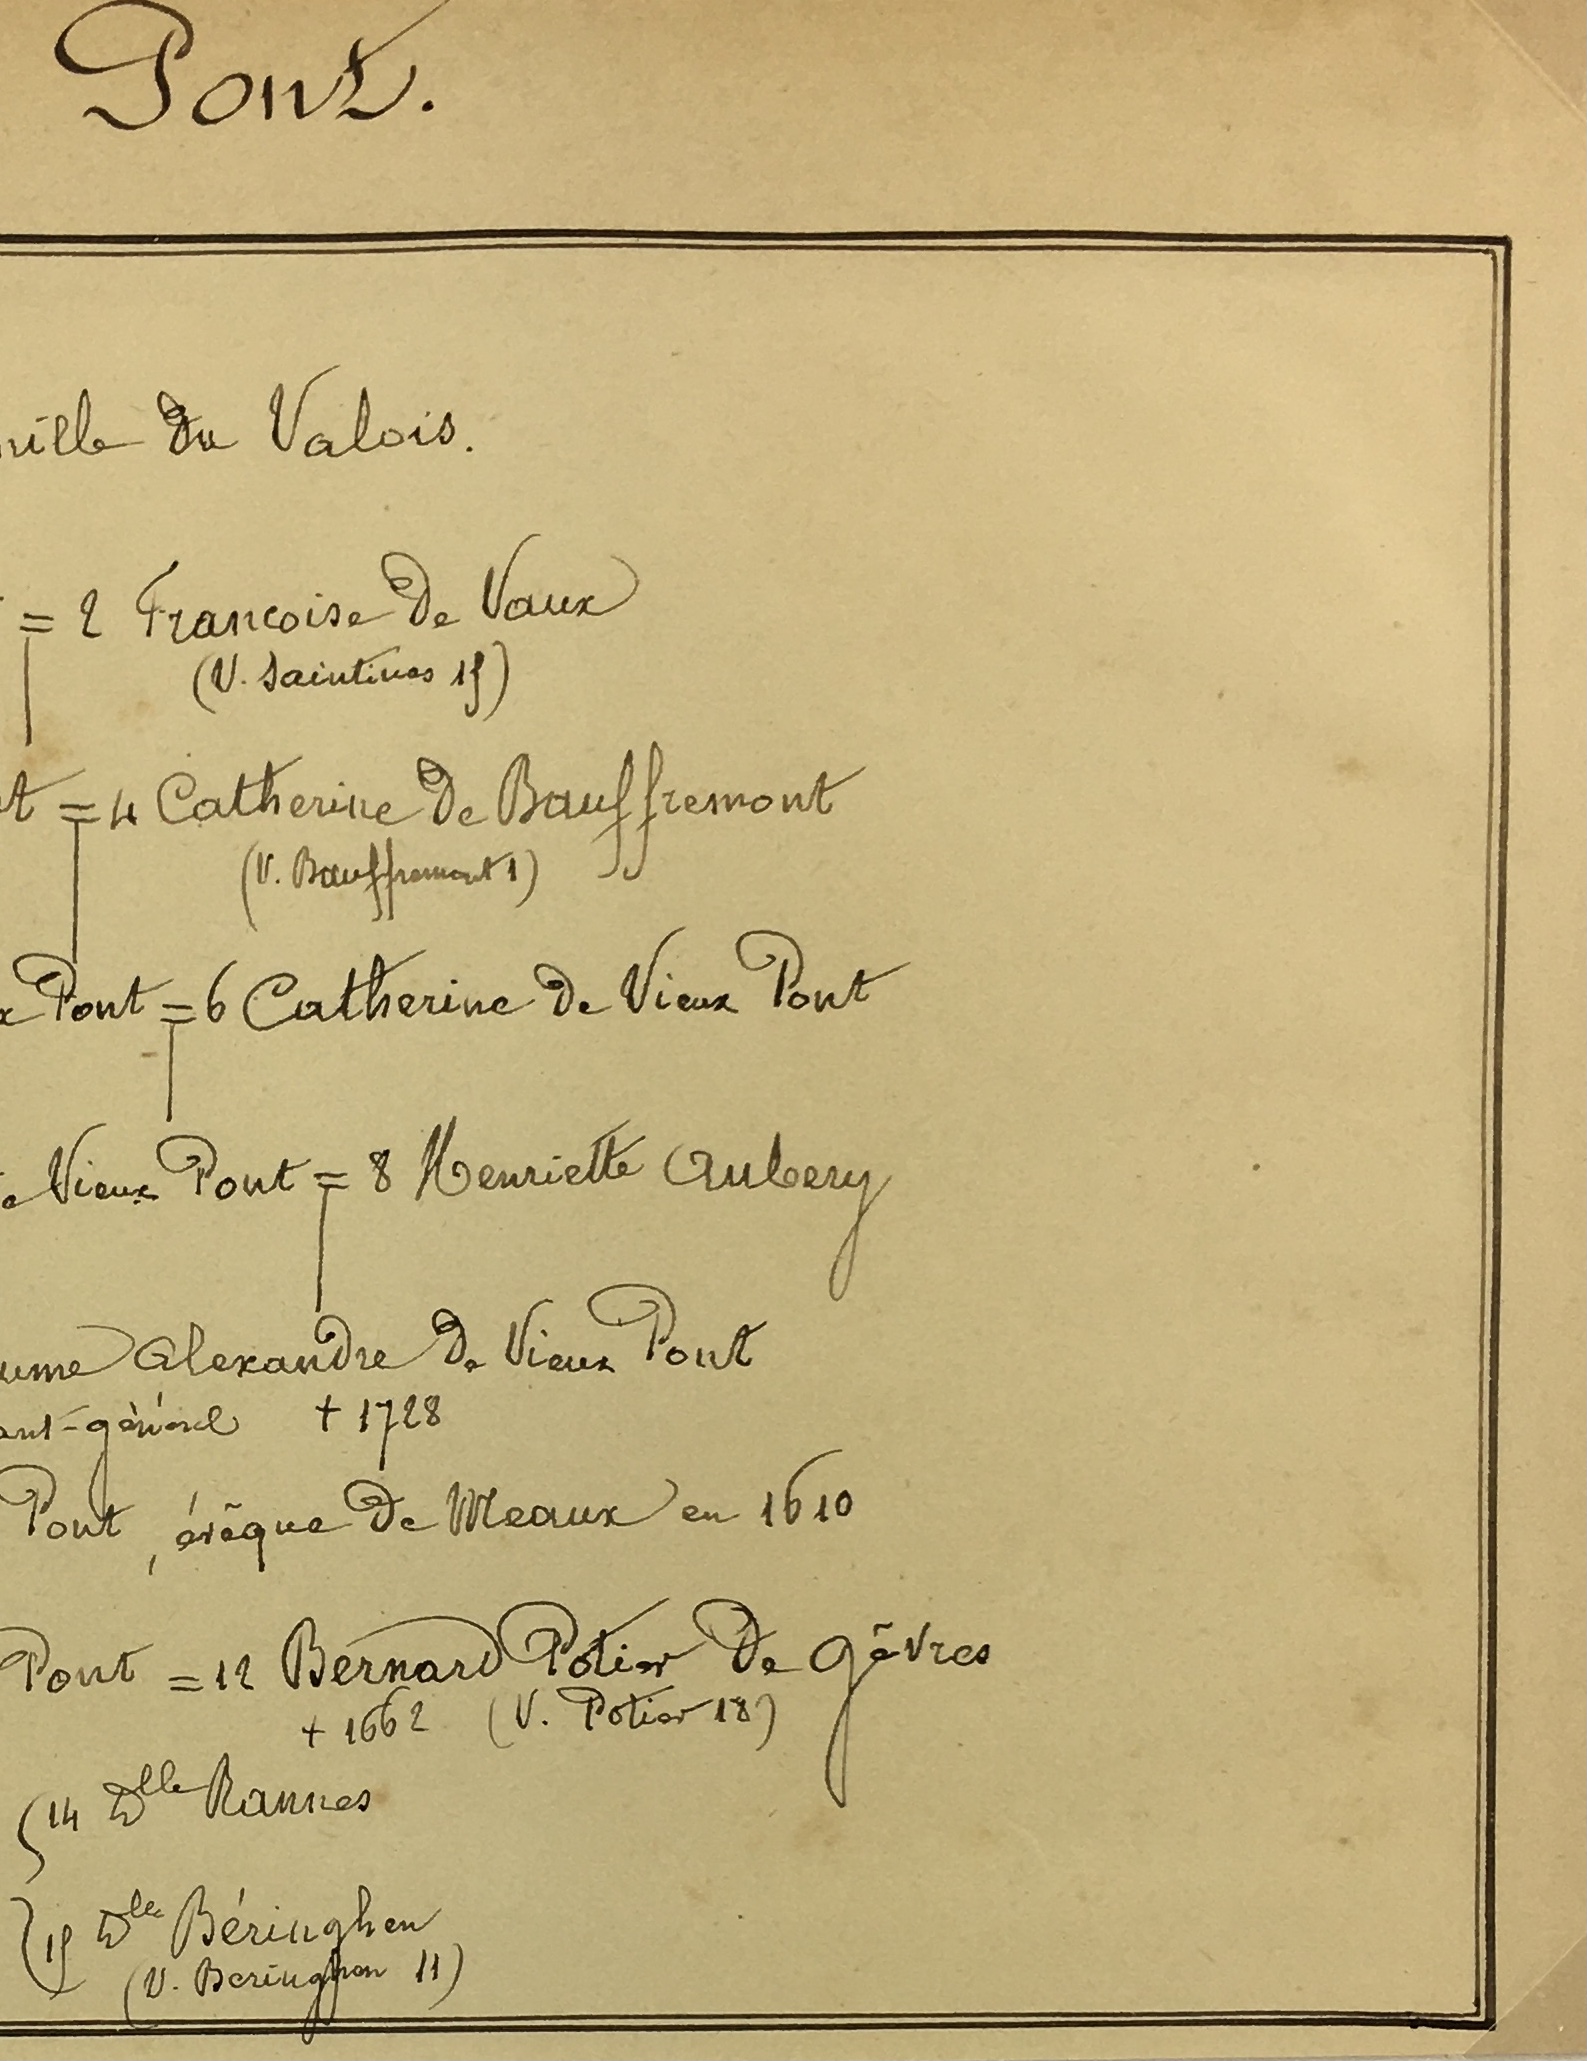 Pont.
mille du Valois.
= 2 Francoise de Vaux
(V. Saintines 15)
t = 4 Catherine de Bauffremont
(V. Bauffremont 1)
x Pont = 6 Catherine de Vieux Pont
Vieux Pont = 8 Henriette Aubery
ume Alexandre de Vieux Pont
ant-général + 1728
Pont, évêque de Meaux en 1610
Pont = 12 Bernard Potier de Gêvres
+ 1662 (V. Potier 18)
14 Dlle Rannes
15 Dlle Béringhen
(V. Beringhen 11)